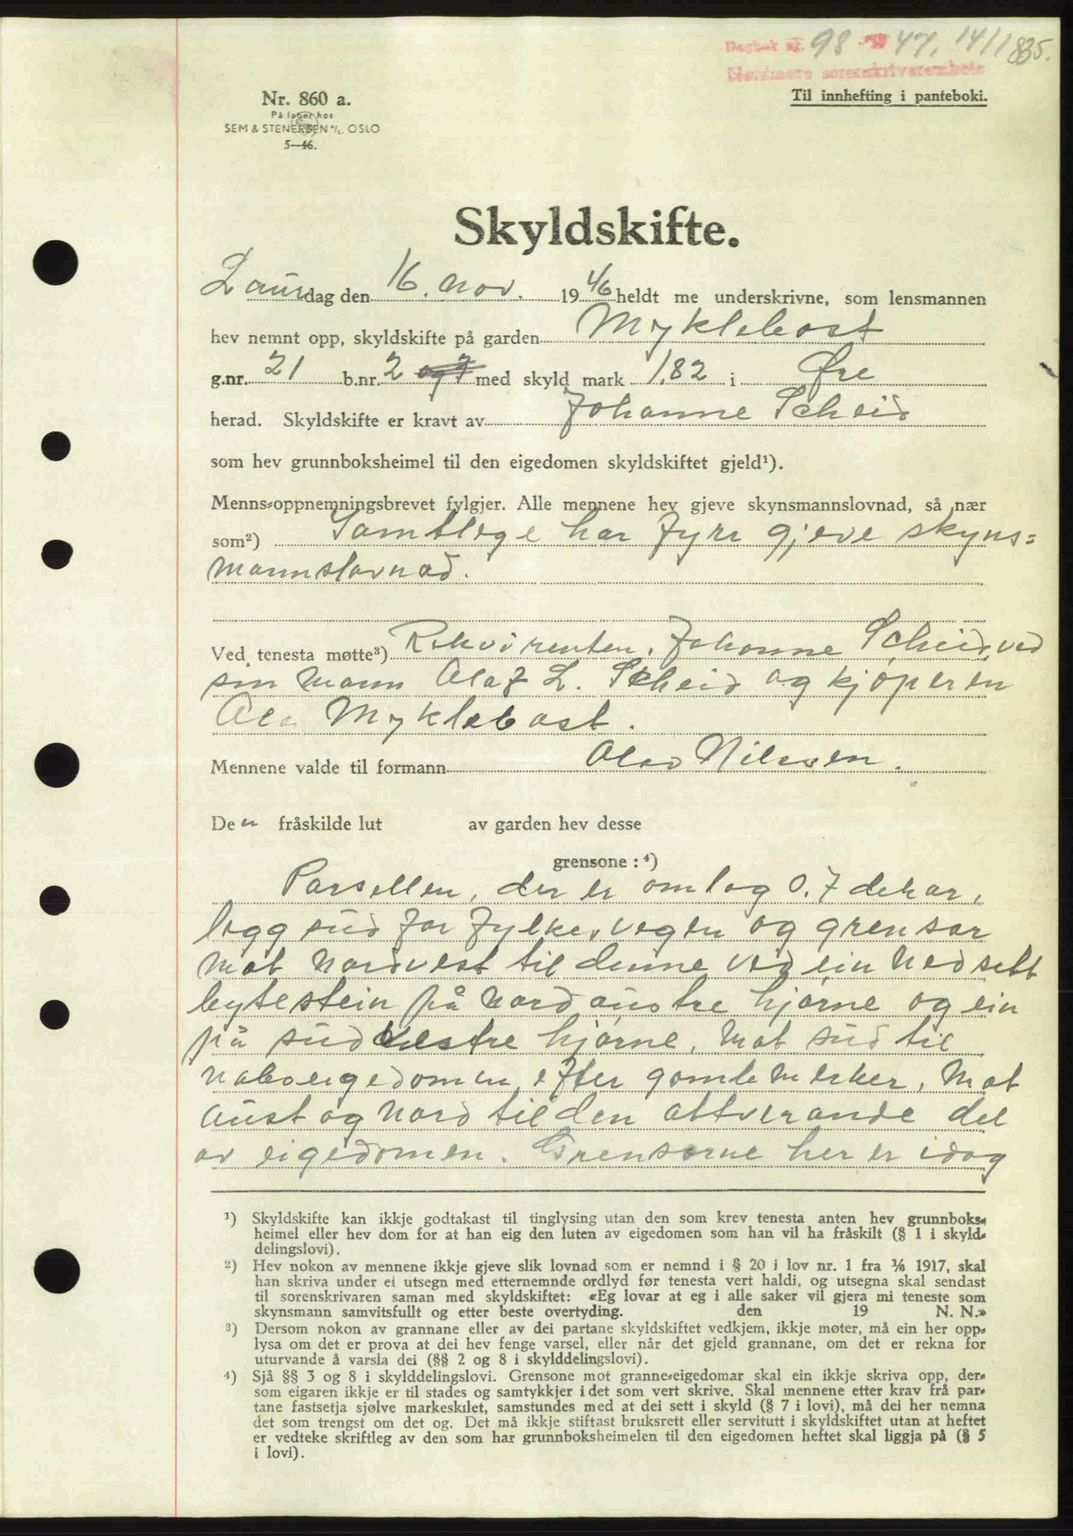 Dagbok nr. 98 19 47, 14/1 835.
Nordmøre sorenskriverembete
Nr. 860 a.
Til innhefting i panteboki.
På lager hos
SEM & STENERSEN A/S, OSLO
5—46.
Skyldskifte.
Laurdag den 16. nov. 1946 heldt me underskrivne, som lensmannen
hev nemnt opp, skyldskifte på garden Myklebost
g.nr. 21 b.nr. 2 og 7 med skyld mark 1,82 i Øre
herad. Skyldskifte er kravt av Johanne Scheid
som hev grunnboksheimel til den eigedomen skyldskiftet gjeld¹).
Menns-oppnemningsbrevet fylgjer. Alle mennene hev gjeve skynsmannslovnad, så nær
som²) Samtlege har fyrr gjeve skyns=
mannslovnad.
Ved tenesta møtte³) Rekvirenten, Johanne Scheid, ved
sin mann Olaf L. Scheid og kjøperen
Ola Myklebost.
Mennene valde til formann Olav Nilssen.
Den fråskilde lut av garden hev desse
grensone : ⁴)
Parsellen, der er omlag 0.7 dekar,
legg sud for fylkesvegen og grensar
mot Nordvest til denne ved ein nedsett
bytestein på nordaustre hjørne og ein
på sudvestre hjørne, mot sud til
naboeigedomen efter gamle merker, mot
aust og nord til den attverande del
av eigedomen. Grensorne her er idag
¹) Skyldskifte kan ikkje godtakast til tinglysing utan den som krev tenesta anten hev grunnboks-
heimel eller hev dom for at han eig den luten av eigedomen som han vil ha fråskilt (§ 1 i skyld-
delingslovi).
²) Hev nokon av mennene ikkje gjeve slik lovnad som er nemnd i § 20 i lov nr. 1 fra 1/6 1917, skal
han skriva under ei utsegn med etternemnde ordlyd før tenesta vert haldi, og utsegna skal sendast
til sorenskrivaren saman med skyldskiftet: «Eg lovar at eg i alle saker vil gjera mi teneste som
skynsmann samvitsfullt og etter beste overtyding. den 19 N. N.»
³) Dersom nokon av grannane eller av dei partane skyldskiftet vedkjem, ikkje møter, må ein her opp-
lysa om det er prova at dei hev fenge varsel, eller når det gjeld grannane, om det er rekna for
uturvande å varsla dei (§§ 2 og 8 i skylddelingslovi).
⁴) Sjå §§ 3 og 8 i skylddelingslovi. Grensone mot granne-eigedomar skal ein ikkje skriva opp, der-
som eigaren ikkje er til stades og samtykkjer i det som vert skrive. Skal mennene etter krav frå par-
tane fastsetja sjølve markeskilet, samstundes med at dei sett i skyld (§ 7 i lovi), må dei her nemna
det som trengst om det og. Det må ikkje stiftast bruksrett eller servitutt i skyldskiftet utan at heftet
er vedteke skriftleg av den som har grunnboksheimelen til den eigedomen heftet skal liggja på (§ 5
i lovi).